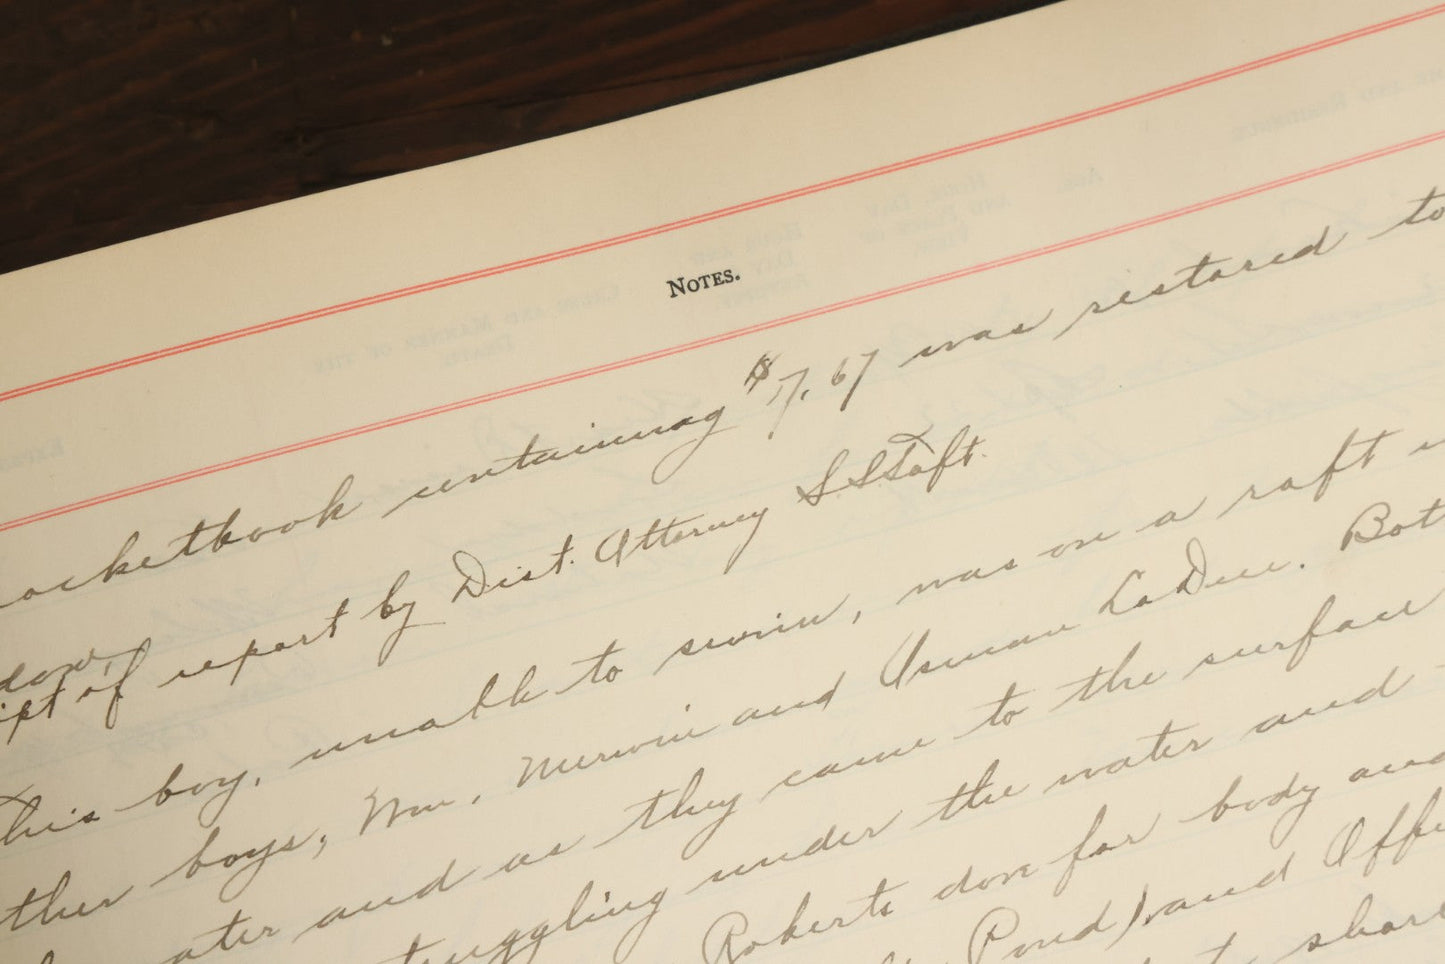 NOTES.
ocketbook containing $17.67 was restored to
dow,
ipt of report by Dist. Attorney S S Taft.
This boy, unable to swim, was on a raft
ther boys; Wm. Merwin and Osman LaDue. Bot
ater and as they came to the surface
truggling under the water and
Roberts dove for body and
Pond) and Offi
shor